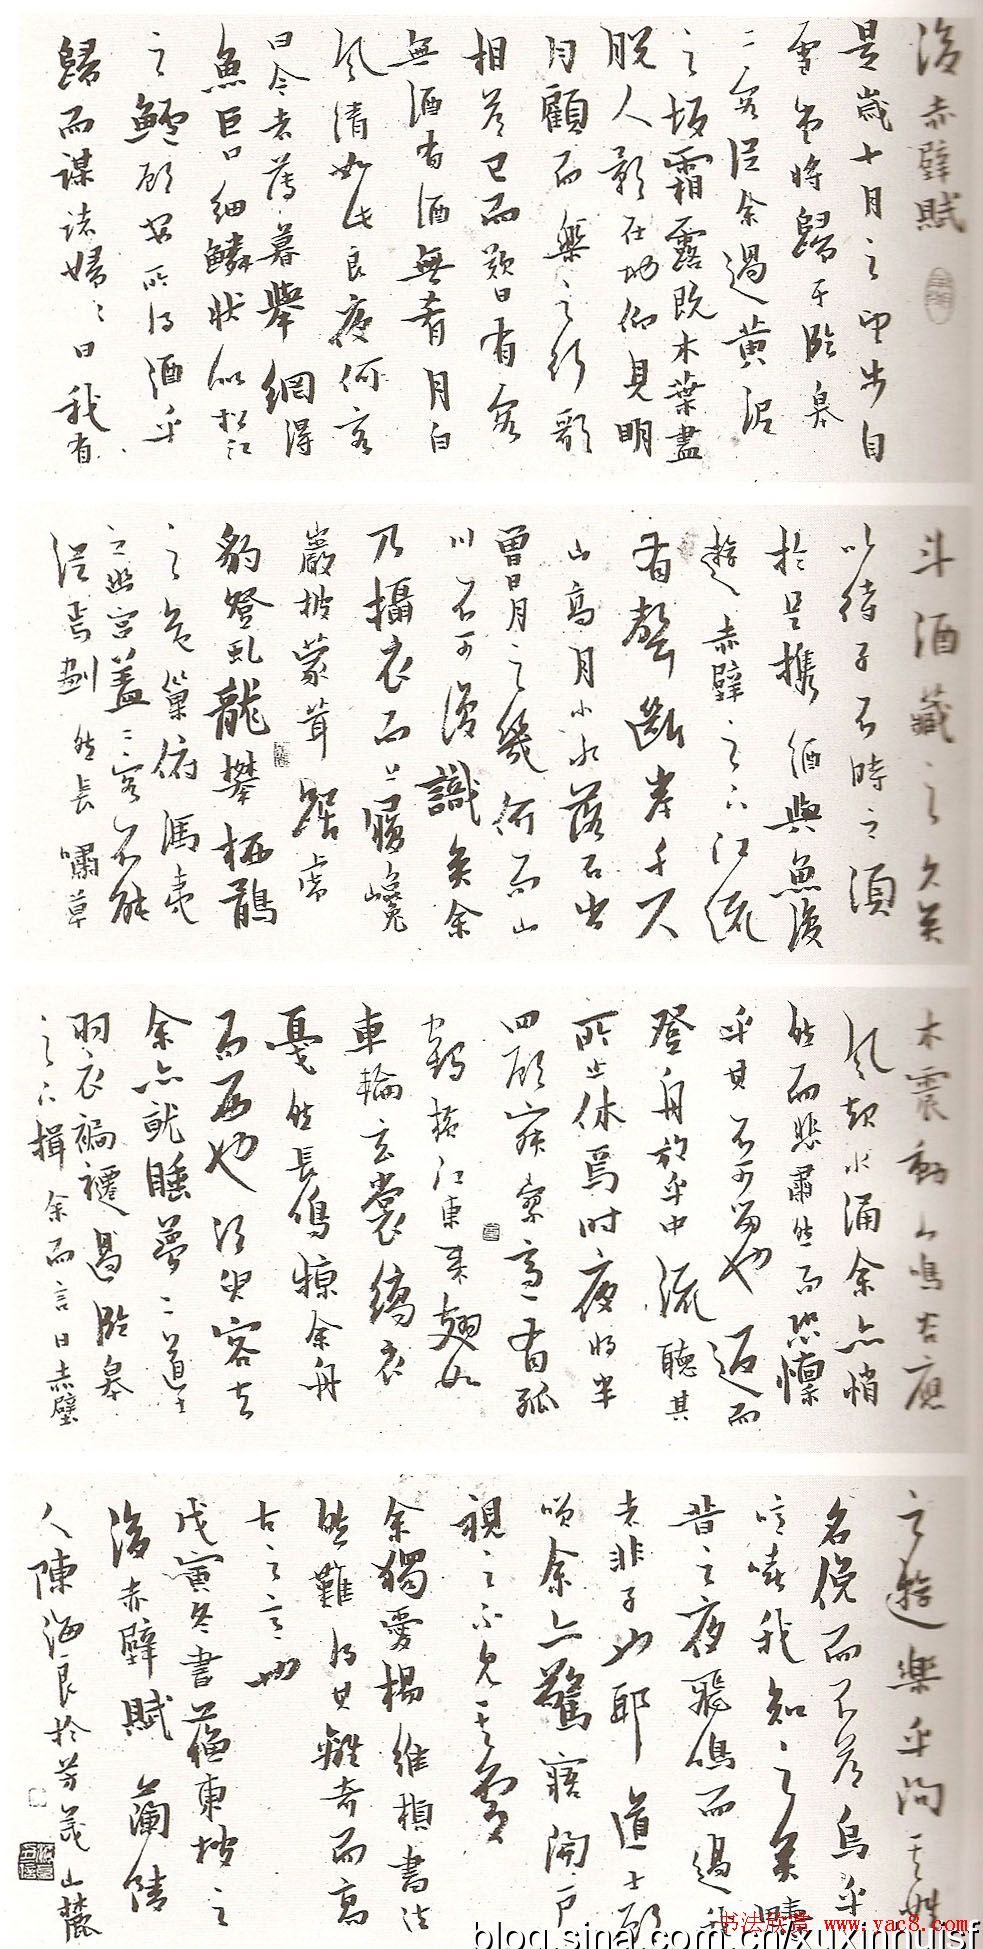 後赤壁賦
是歲十月之望步自
雪堂將歸于臨皋
二客從余過黃泥
之坂霜露既木葉盡
脫人影在地仰見明
月顧而樂之行歌
相答已而歎曰有客
無酒有酒無肴月白
風清如此良夜何客
曰今者薄暮舉網得
魚巨口細鱗狀似松江
之鱸顧安所得酒乎
歸而謀諸婦〻曰我有
斗酒藏之久矣
以待子不時之須
於是攜酒與魚復
遊赤壁之下江流
有聲斷岸千尺
山高月小水落石出
曾日月之幾何而山
川不可復識矣余
乃攝衣而上履巉
巖披蒙茸踞虎
豹登虬龍攀栖鶻
之危巢俯馮夷
之幽宮蓋二客不能
從焉劃然長嘯草
木震動山鳴谷應
風起水涌余亦悄
然而悲肅然而恐凜
乎其不可留也返而
登舟放乎中流聽其
所止休焉时夜將半
四顧寂寥適有孤
鶴橫江東來翅如
車輪玄裳縞衣
戛然長鳴掠余舟
而西也須臾客去
余亦就睡夢二道士
羽衣褊褼過臨皋
之下揖余而言曰赤壁
之遊樂乎問其姓
名俛而不答烏乎
噫嘻我知之矣疇
昔之夜飛鳴而過我
者非子也耶道士顧
嘆余亦驚寤開戶
視之不見其處
余獨愛楊維楨書法
然難得其離奇而高
古之意也
戊寅冬書蘇東坡之
後赤壁賦 蘭陵
人陳海良於芳茂山麓
书法欣赏 www.yac8.com
blog.sina.com.cn/xuxinhuisf